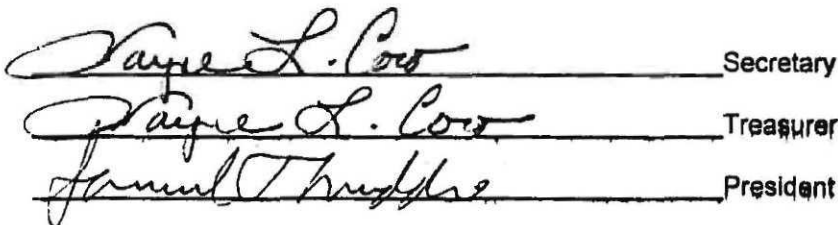 Wayne L. Cow Secretary
Wayne L. Cow Treasurer
Samuel President